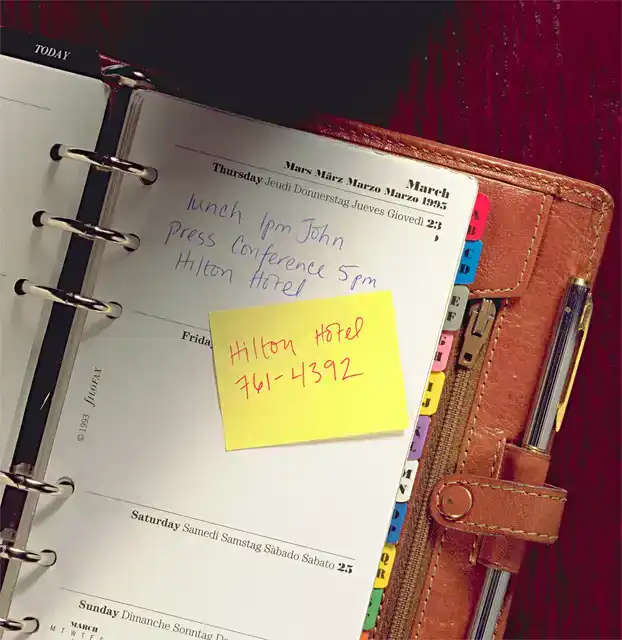 TODAY
March
Mars März Marzo Marzo 1995
Thursday Jeudi Donnerstag Jueves Giovedi 23
lunch 1pm John
Press Conference 5pm
Hilton Hotel
Frida
Hilton Hotel
761-4392
© 1993 FILOFAX
Saturday Samedi Samstag Sàbado Sabato 25
Sunday Dimanche Sonntag Do
MARCH
M T W T F S
A B
C D
E F
G H
I J
K L
M N
O P
Q R